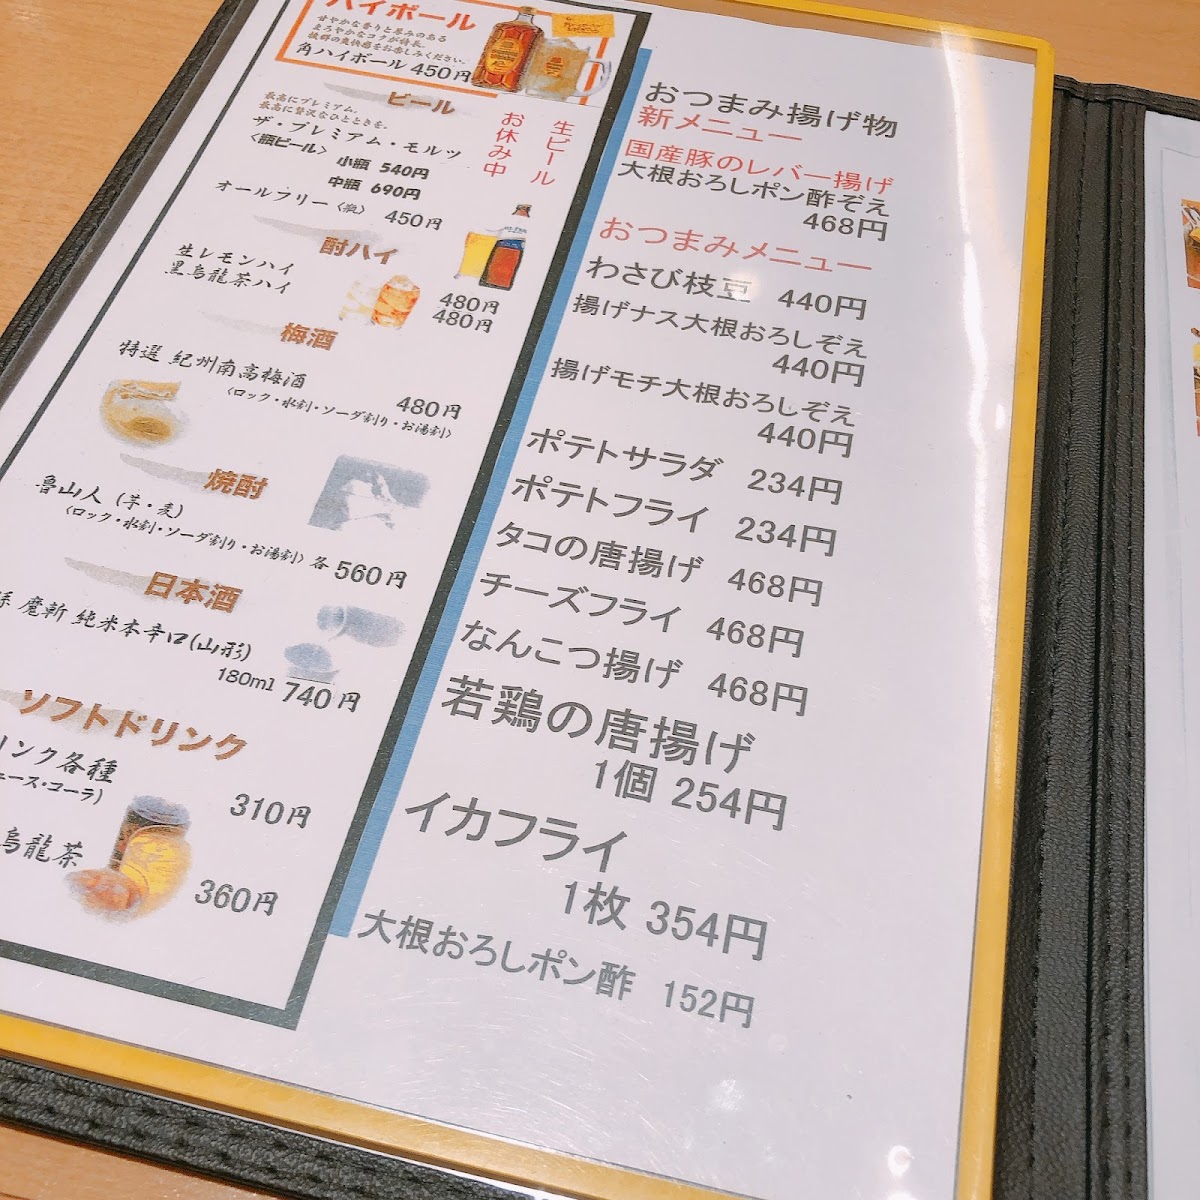 ハイボール
甘やかな香りと厚みのある
まろやかなコクが特長。
抜群の爽快感をお楽しみください。
角ハイボール 450円
ビール
最高にプレミアム。
最高に贅沢なひとときを。
ザ・プレミアム・モルツ
〈瓶ビール〉 小瓶 540円
中瓶 690円
オールフリー〈瓶〉 450円
生ビール
お休み中
酎ハイ
生レモンハイ 480円
黒烏龍茶ハイ 480円
梅酒
特選 紀州南高梅酒 480円
〈ロック・水割・ソーダ割り・お湯割〉
焼酎
魯山人 (芋・麦)
〈ロック・水割・ソーダ割り・お湯割〉各 560円
日本酒
魔斬 純米本辛口(山形)
180ml 740円
ソフトドリンク
リンク各種
ュース・コーラ) 310円
烏龍茶 360円
おつまみ揚げ物
新メニュー
国産豚のレバー揚げ
大根おろしポン酢ぞえ
468円
おつまみメニュー
わさび枝豆 440円
揚げナス大根おろしぞえ
440円
揚げモチ大根おろしぞえ
440円
ポテトサラダ 234円
ポテトフライ 234円
タコの唐揚げ 468円
チーズフライ 468円
なんこつ揚げ 468円
若鶏の唐揚げ
1個 254円
イカフライ
1枚 354円
大根おろしポン酢 152円